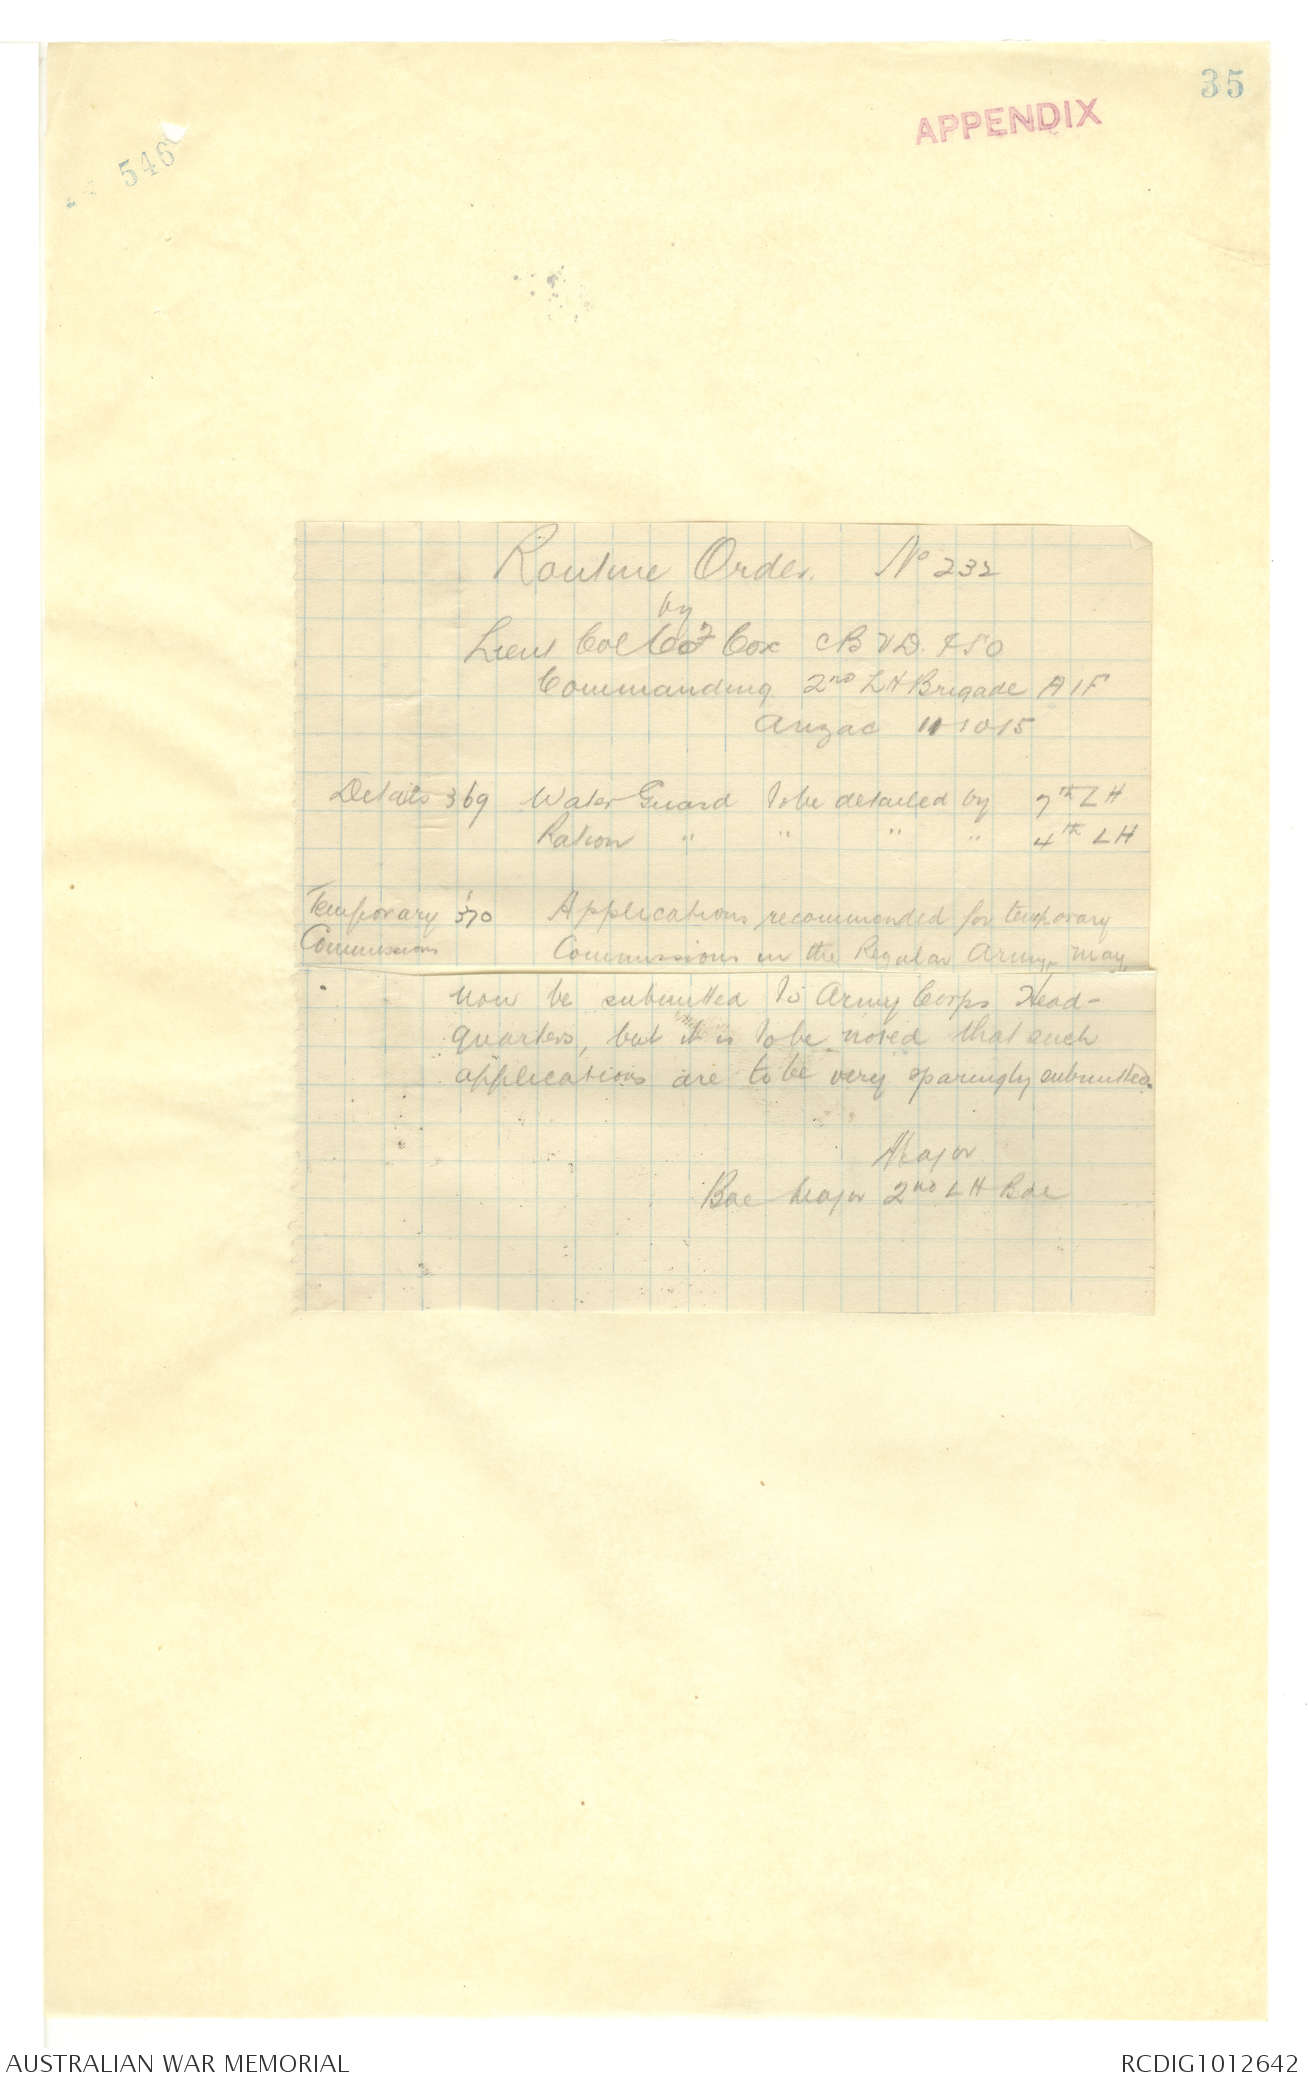 35
APPENDIX
546
Routine Order. No 232
by
Lieut Col Cox CB VD.
Commanding 2nd LH Brigade AIF
Anzac 11 10 15
Details 369 Water Guard to be detailed by 7th LH
Ration " " " " 4th LH
Temporary 370 Applications recommended for temporary
Commissions Commissions in the Regular Army, may
now be submitted to Army Corps Head-
quarters, but it is to be noted that such
applications are to be very sparingly submitted.
Major
Bde Major 2nd LH Bde
AUSTRALIAN WAR MEMORIAL
RCDIG1012642